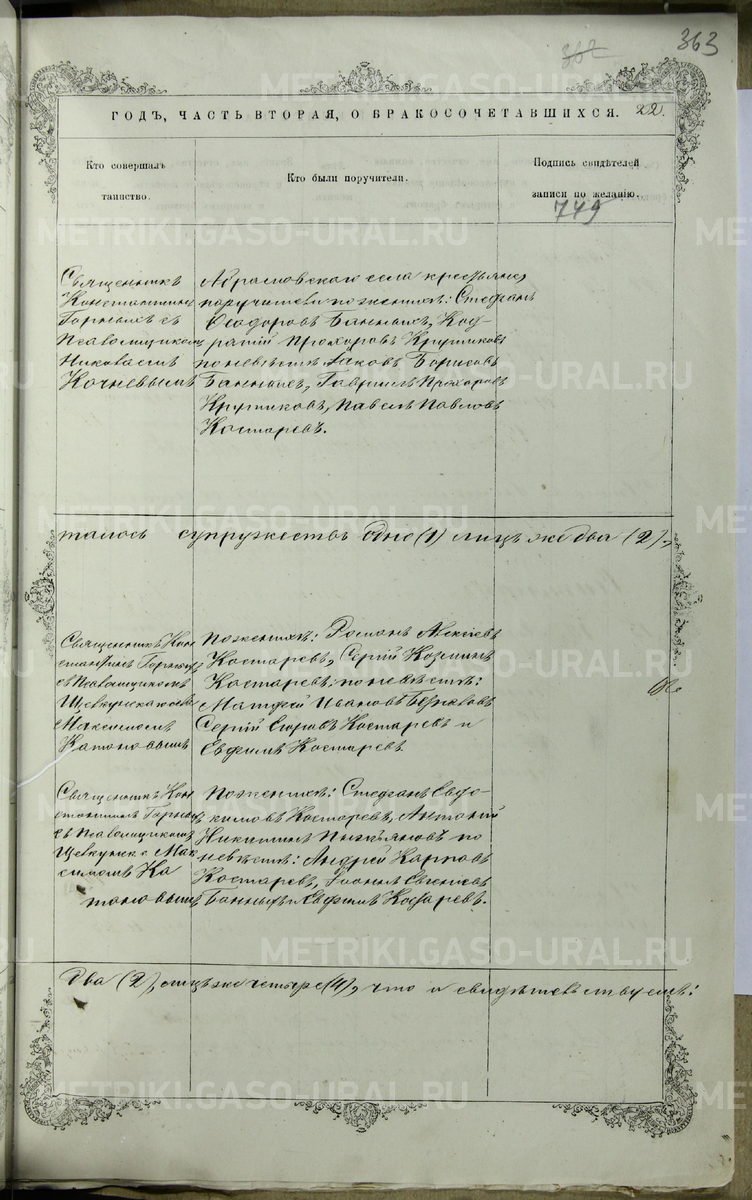 362
363
ГОДЪ, ЧАСТЬ ВТОРАЯ, О БРАКОСОЧЕТАВШИХСЯ. 22.
Кто совершалъ
таинство.
Кто были поручители.
Подпись свидѣтелей
записи по желанію.
749
Священникъ
Константинъ
Горныхъ съ
Псаломщикомъ
Николаемъ
Кочневымъ
Абрамовскаго села крестьяне,
поручители по женихѣ: Стефанъ
Ѳеодоровъ Банныхъ, Код-
ратій Прохоровъ Крутиковъ
по невѣстѣ: Іаковъ Борисовъ
Банныхъ, Гавріилъ Прохоровъ
Крутиковъ, Павелъ Павловъ
Костаревъ.
талось супружествъ одно (1) лицъ же два (2).
Священникъ Кон
стантинъ Горныхъ
съ Псаломщикомъ
Максимомъ
Катановымъ
По женихѣ: Романъ Алексѣевъ
Костаревъ, Сергій Козминъ
Костаревъ; по невѣстѣ:
Матѳей Ивановъ
Сергій Егоровъ Костаревъ и
Евфимъ Костаревъ
Священникъ Кон
стантинъ Горныхъ
съ Псаломщикомъ
Мак
симомъ Ка
тановымъ
По женихѣ: Стефанъ Евдо-
кимовъ Костаревъ, Антоній
Никитинъ по
невѣстѣ: Андрей Карповъ
Костаревъ, Евгеніевъ
Банныхъ и Евфимъ Костаревъ.
два (2), лицъ же четыре (4), что и свидѣтельствуемъ:
METRIKI.GASO-URAL.RU